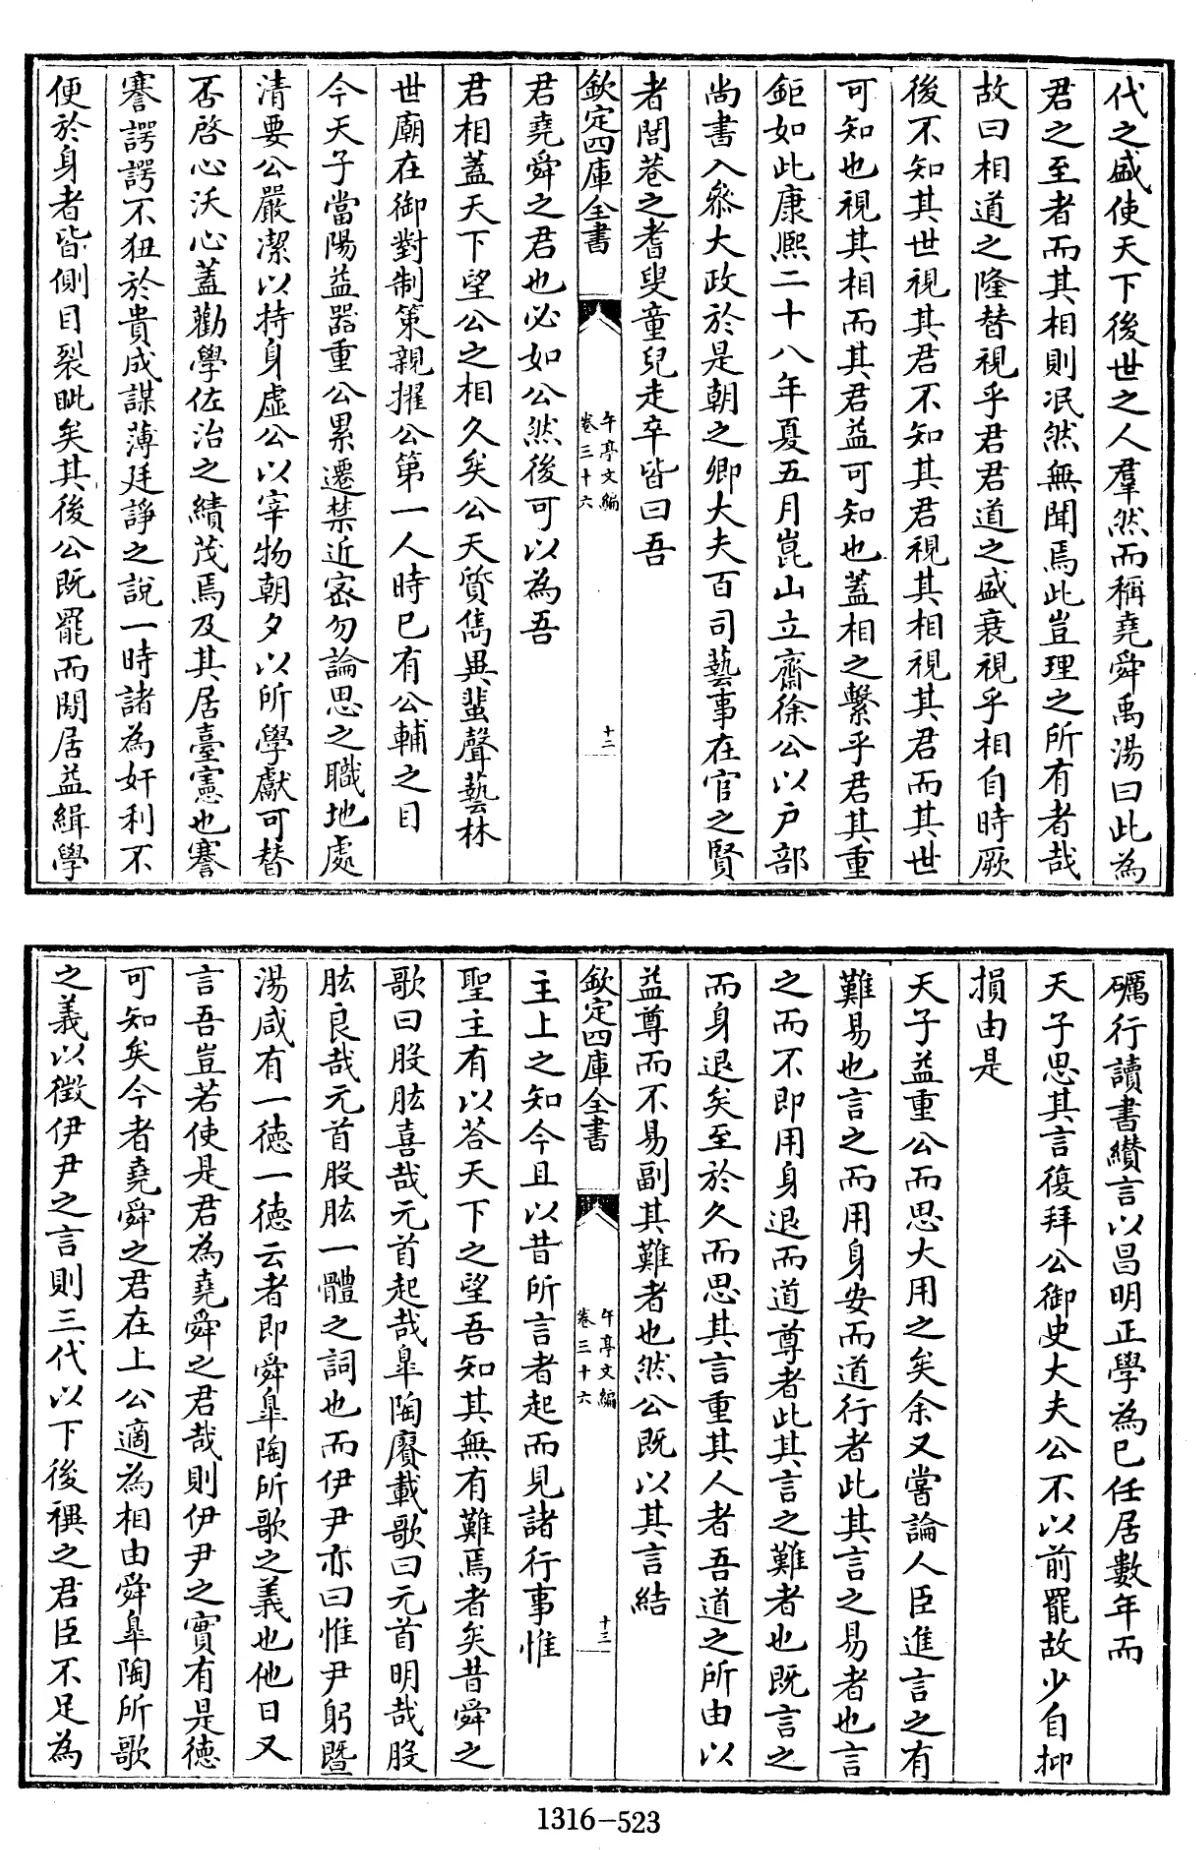 代之盛使天下後世之人羣然而稱堯舜禹湯曰此為
君之至者而其相則泯然無聞焉此豈理之所有者哉
故曰相道之隆替視乎君君道之盛衰視乎相自時厥
後不知其世視其君不知其君視其相視其君而其世
可知也視其相而其君益可知也蓋相之繫乎君其重
鉅如此康熙二十八年夏五月崑山立齋徐公以戶部
尚書入叅大政於是朝之卿大夫百司藝事在官之賢
者閭巷之耆叟童兒走卒皆曰吾
欽定四庫全書
午亭文編
卷三十六
十二
君堯舜之君也必如公然後可以為吾
君相蓋天下望公之相久矣公天質儁異蜚聲藝林
世廟在御對制策親擢公第一人時已有公輔之目
今天子當陽益器重公累遷禁近宻勿論思之職地處
清要公嚴潔以持身虛公以宰物朝夕以所學獻可替
否啓心沃心蓋勸學佐治之績茂焉及其居臺憲也謇
謇諤諤不狃於貴成謀薄廷諍之說一時諸為奸利不
便於身者皆側目裂眦矣其後公既罷而閒居益緝學
礪行讀書纘言以昌明正學為已任居數年而
天子思其言復拜公御史大夫公不以前罷故少自抑
損由是
天子益重公而思大用之矣余又嘗論人臣進言之有
難易也言之而用身安而道行者此其言之易者也言
之而不即用身退而道尊者此其言之難者也既言之
而身退矣至於久而思其言重其人者吾道之所由以
益尊而不易副其難者也然公既以其言結
欽定四庫全書
午亭文編
卷三十六
十三
主上之知今且以昔所言者起而見諸行事惟
聖主有以荅天下之望吾知其無有難焉者矣昔舜之
歌曰股肱喜哉元首起哉臯陶賡載歌曰元首明哉股
肱良哉元首股肱一體之詞也而伊尹亦曰惟尹躬暨
湯咸有一德一德云者即舜臯陶所歌之義也他日又
言吾豈若使是君為堯舜之君哉則伊尹之實有是德
可知矣今者堯舜之君在上公適為相由舜臯陶所歌
之義以徵伊尹之言則三代以下後禩之君臣不足為
1316-523